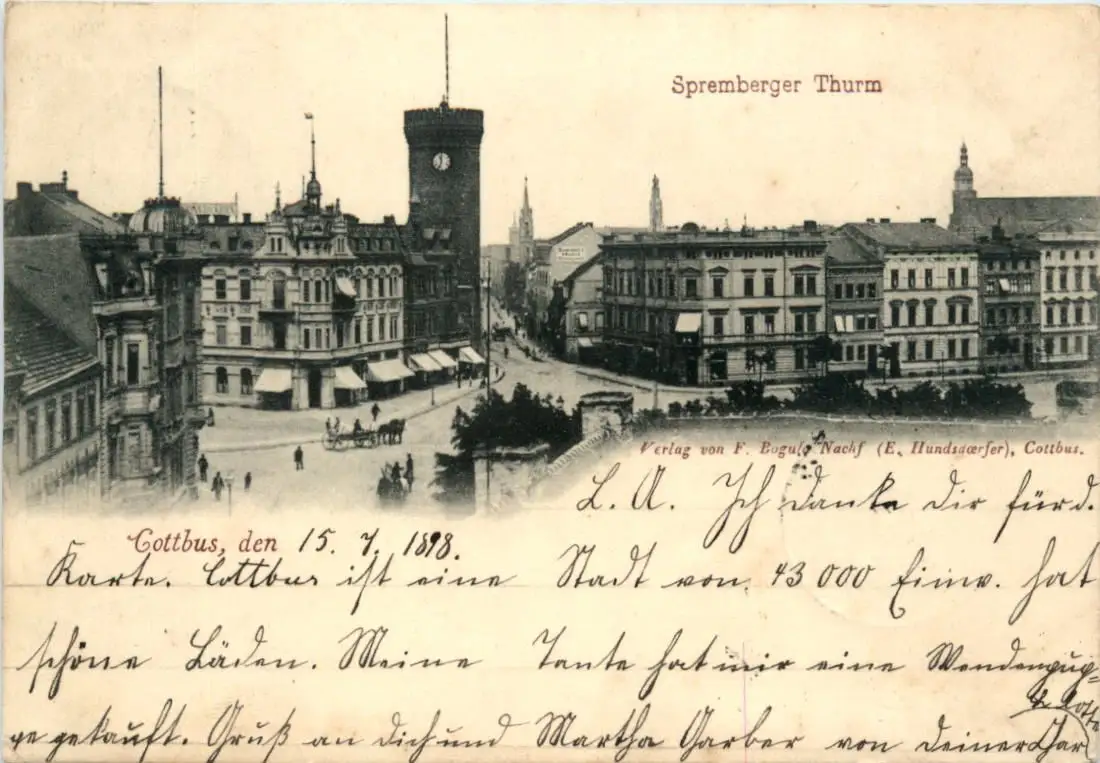 Spremberger Thurm
Verlag von F. Bogula Nachf (E. Hundsdoerfer), Cottbus.
L. A. Ich danke dir für d.
Cottbus, den 15. 7. 1898.
Karte. Cottbus ist eine Stadt von 43 000 Einw. hat
schöne Läden. Meine Tante hat mir eine Wendenpup-
pe gekauft. Gruß an dich und Martha Garber von deiner